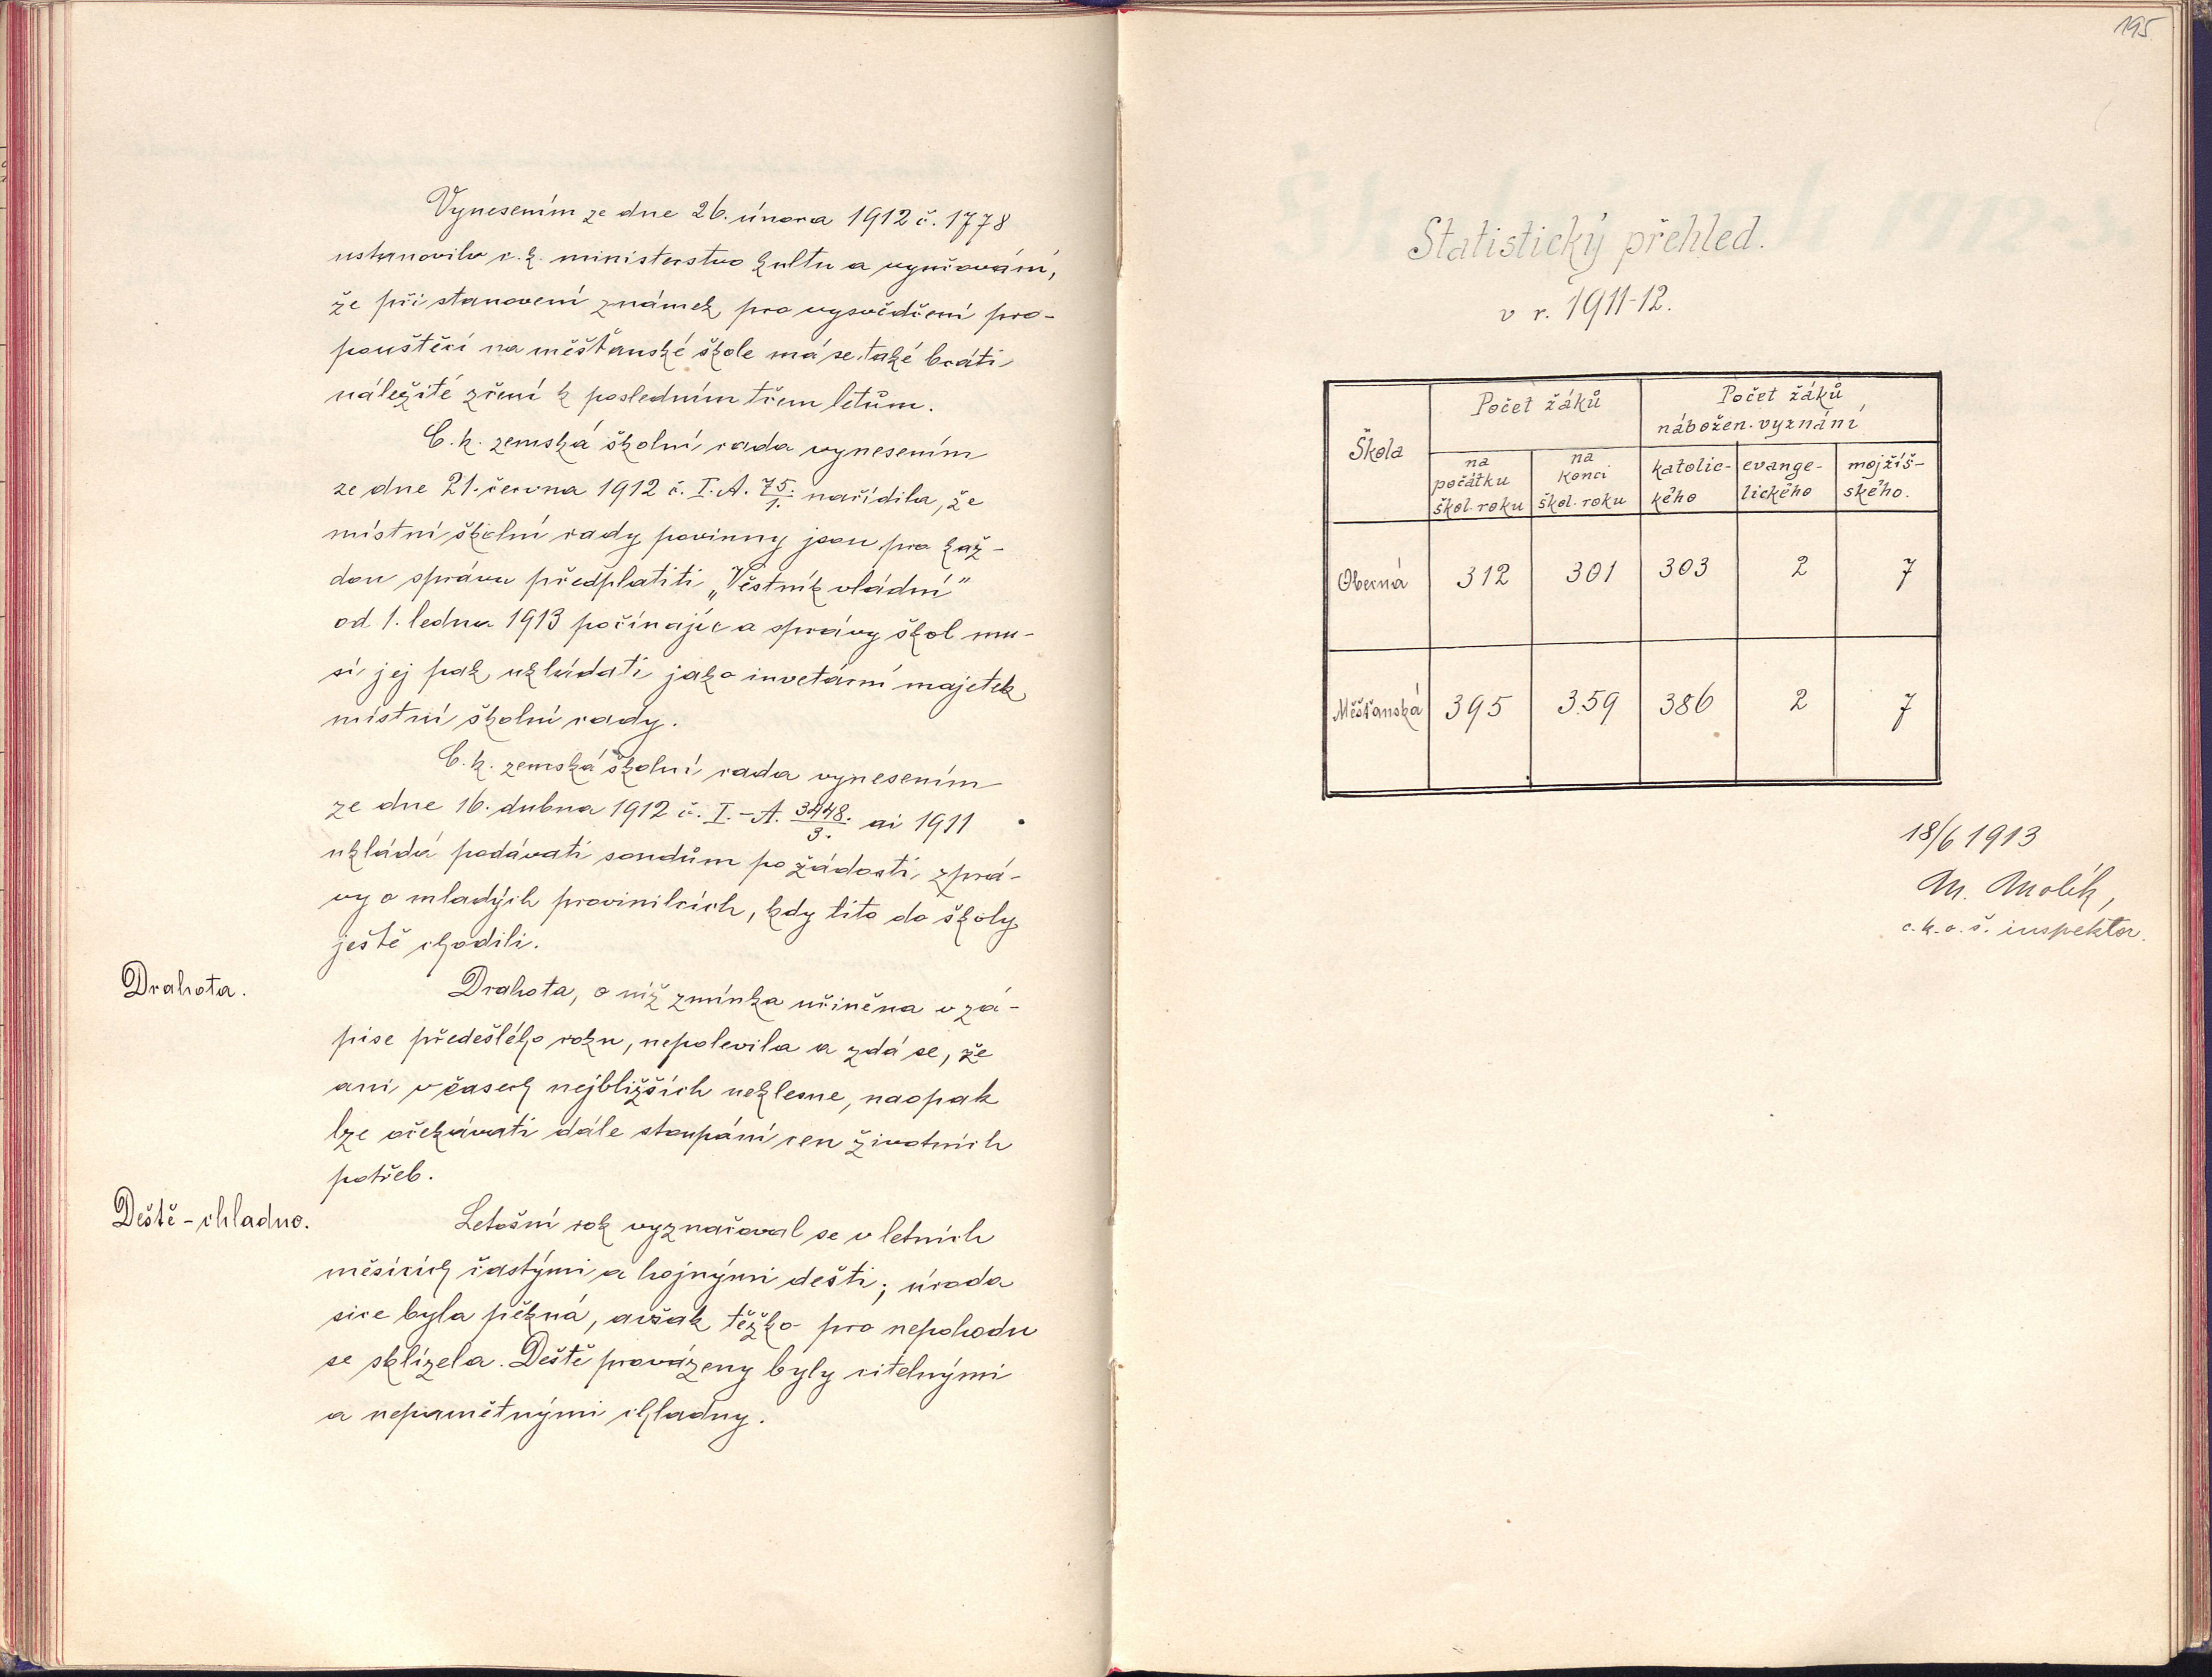 Vynesením ze dne 26. února 1912 č. 1778
ustanovilo c. k. ministerstvo kultu a vyučování,
že při stanovení známek pro vysvědčení pro-
pouštěcí na měšťanské škole má se také bráti
náležité zření k posledním třem letům.
C. k. zemská školní rada vynesením
ze dne 21. června 1912 č. I. A. 75./1. nařídila, že
místní školní rady povinny jsou pro kaž-
dou správu předplatiti „Věstník vládní"
od 1. ledna 1913 počínajíc a správy škol mu-
sí jej pak ukládati jako invetární majetek
místní školní rady.
C. k. zemská školní rada vynesením
ze dne 16. dubna 1912 č. I.-A. 3448./3. ai 1911
ukládá podávati soudům po žádosti zprá-
vy o mladých provinilcích, kdy tito do školy
ještě chodili.
Drahota.
Drahota, o níž zmínka učiněna v zá-
pise předešlého roku, nepolevila a zdá se, že
ani v časech nejbližších neklesne, naopak
lze očekávati dále stoupání cen životních
potřeb.
Deště - chladno.
Letošní rok vyznačoval se v letních
měsících častými a hojnými dešti; úroda
sice byla pěkná, avšak těžko pro nepohodu
se sklízela. Deště provázeny byly citelnými
a nepamětnými chladny.
195.
Statistický přehled.
v r. 1911-12.
Škola
Počet žáků
Počet žáků
nábožen. vyznání
na
počátku
škol. roku
na
konci
škol. roku
katolic-
kého
evange-
lického
mojžíš-
ského.
Obecná 312 301 303 2 7
Měšťanská 395 359 386 2 7
18/6 1913
M. Molík,
c. k. o. š. inspektor.